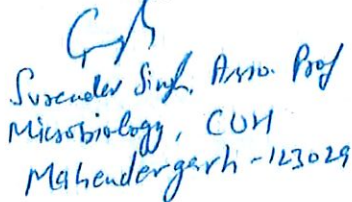 Surender Singh, Asso. Prof
Microbiology, CUH
Mahendergarh - 123029